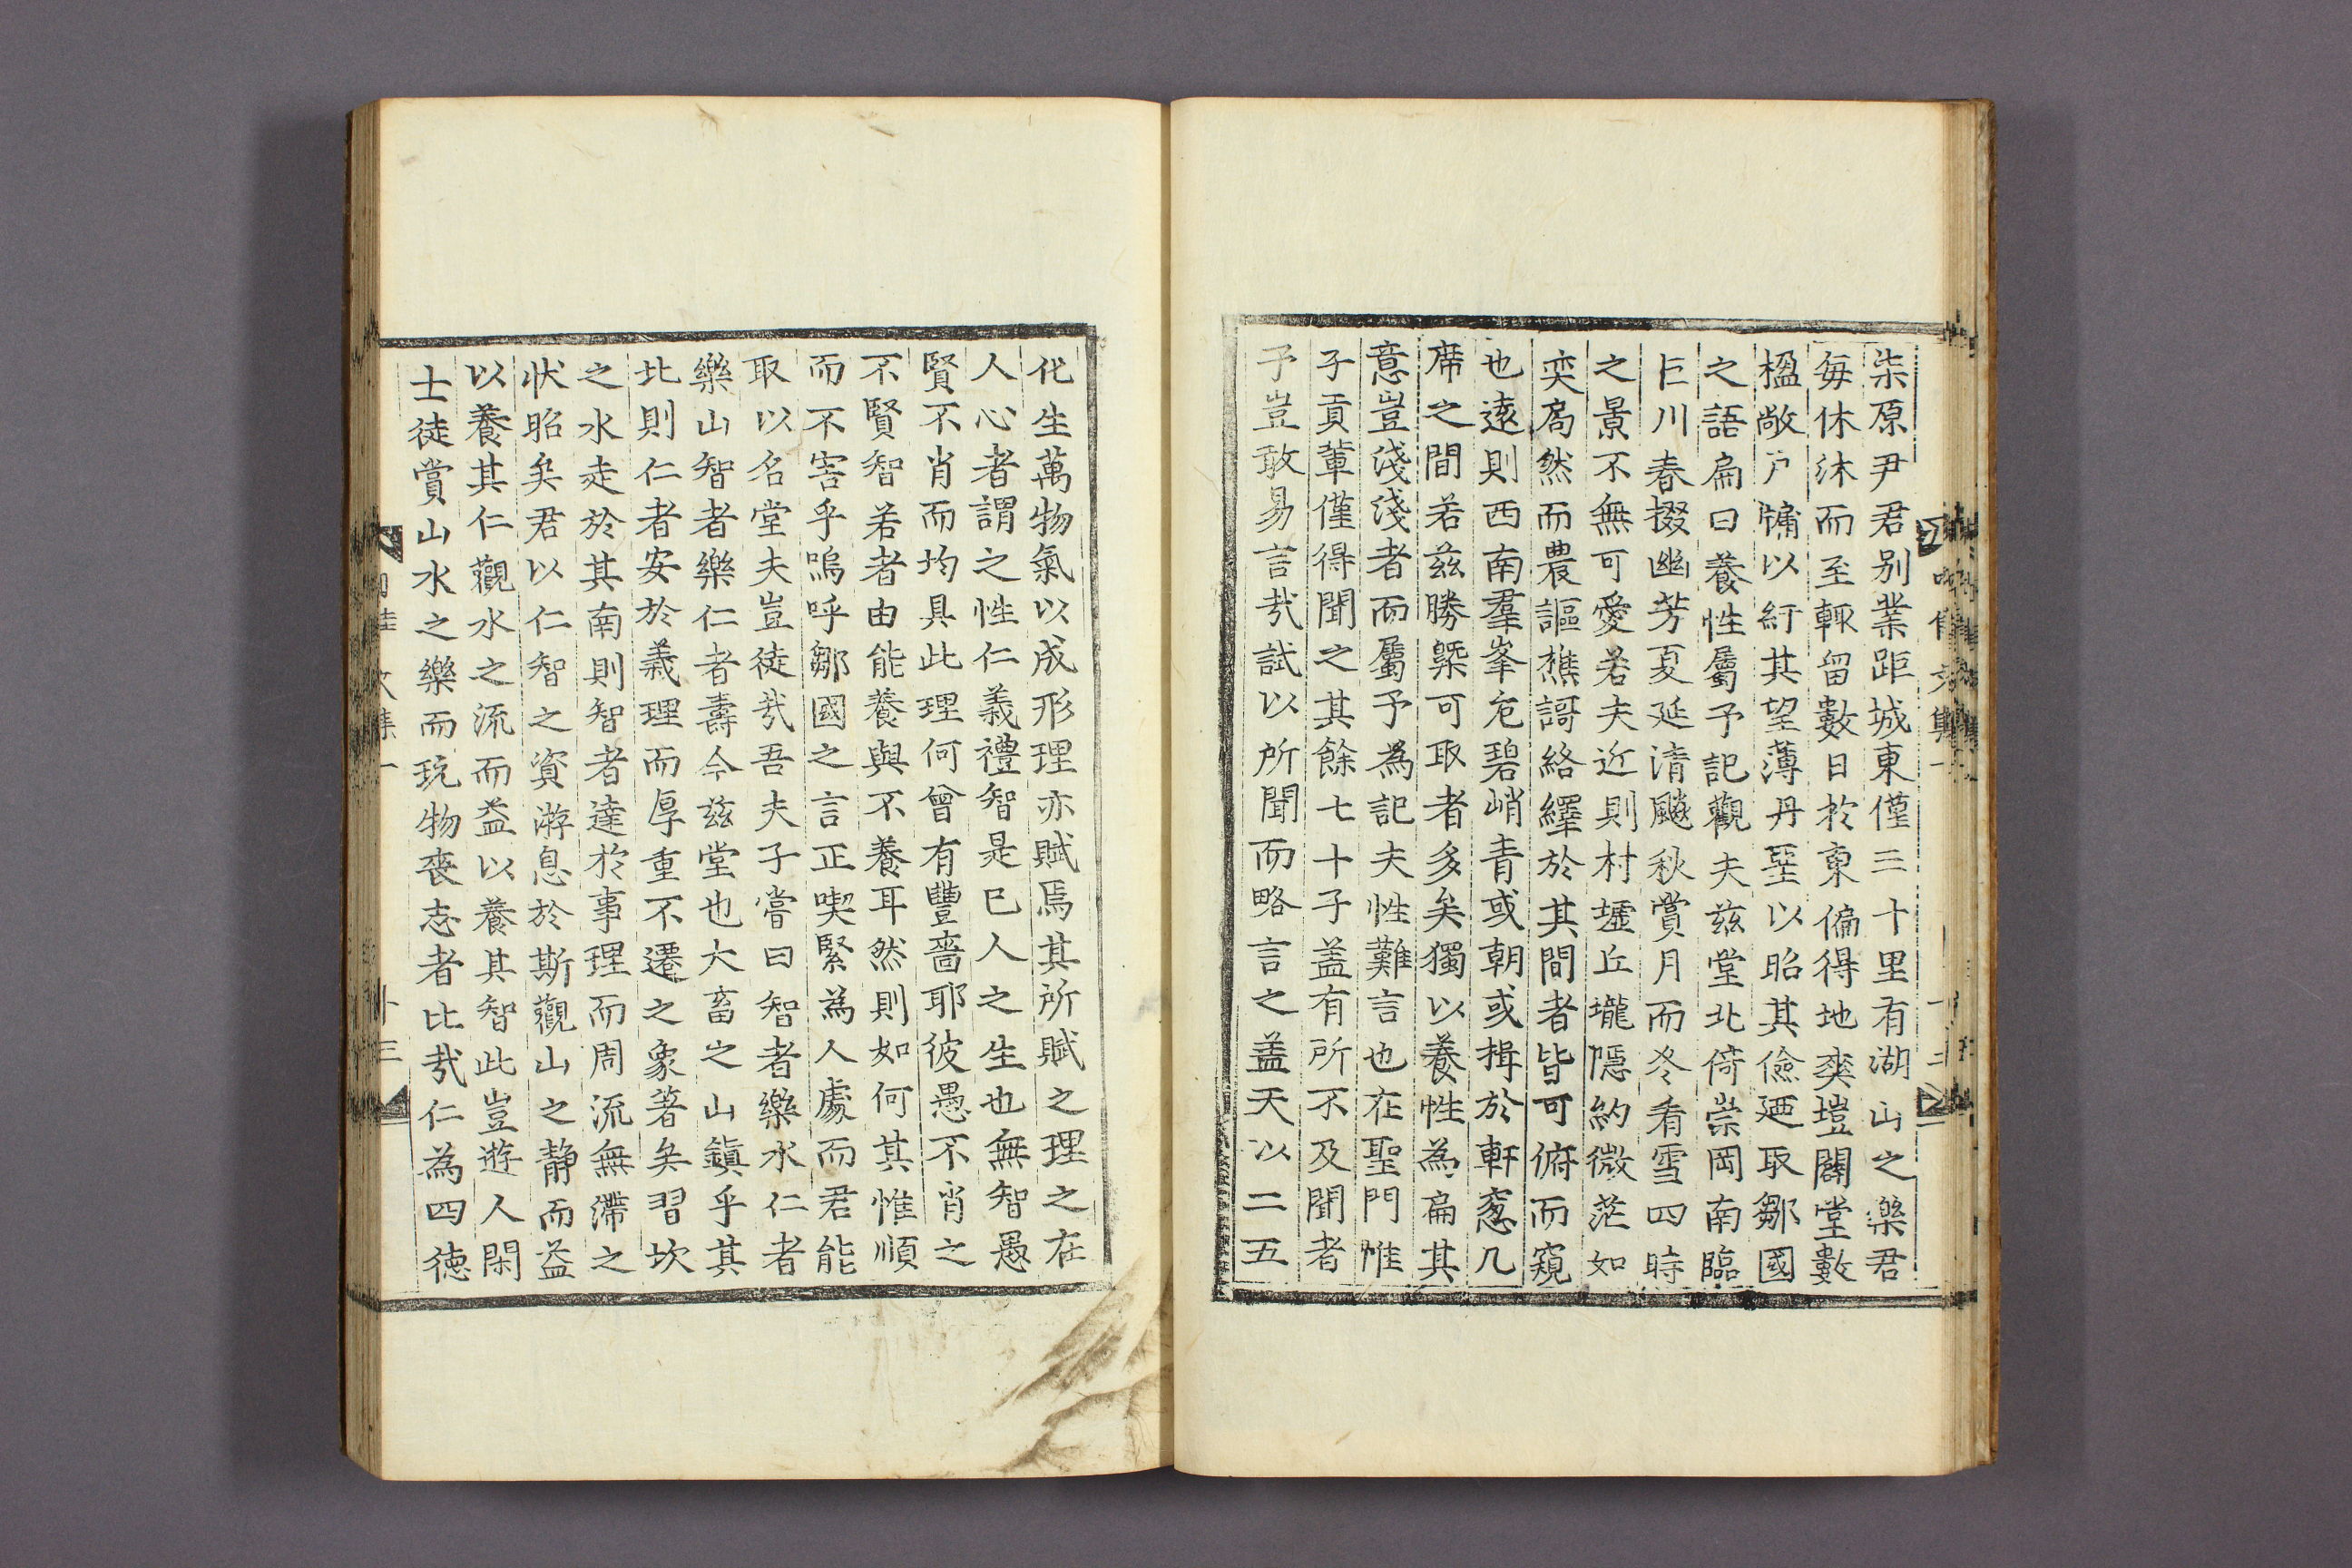 柒原尹君别業距城東僅三十里有湖山之樂君
每休沐而至輒留數日於東偏得地爽塏闢堂數
楹敞戶牗以紆其望薄丹堊以昭其儉廼取鄒國
之語扁曰養性屬予記觀夫玆堂北倚崇岡南臨
巨川春掇幽芳夏延清飈秋賞月而冬看雪四時
之景不無可愛若夫近則村墟丘壠隱約微茫如
奕局然而農謳樵謌絡繹於其間者皆可俯而窺
也遠則西南羣峯危碧峭青或朝或揖於軒窓几
席之間若玆勝槩可取者多矣獨以養性為扁其
意豈淺淺者而屬予為記夫性難言也在聖門惟
子貢輩僅得聞之其餘七十子盖有所不及聞者
予豈敢易言㢤試以所聞而略言之盖天以二五
化生萬物氣以成形理亦賦焉其所賦之理之在
人心者謂之性仁義禮智是已人之生也無智愚
賢不肖而均具此理何曾有豐嗇耶彼愚不肖之
不賢智若者由能養與不養耳然則如何其惟順
而不害乎嗚呼鄒國之言正喫緊為人處而君能
取以名堂夫豈徒㢤吾夫子嘗曰智者樂水仁者
樂山智者樂仁者壽今玆堂也大畜之山鎭乎其
北則仁者安於義理而厚重不遷之象著矣習坎
之水走於其南則智者達於事理而周流無滯之
狀昭矣君以仁智之資游息於斯觀山之靜而益
以養其仁觀水之流而益以養其智此豈遊人閑
士徒賞山水之樂而玩物喪志者比㢤仁為四徳
文集一
十三